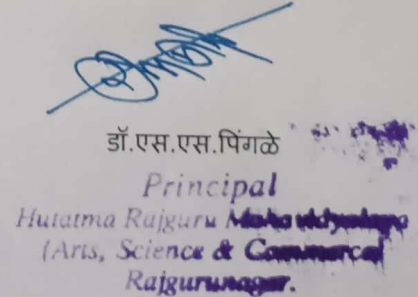 डॉ.एस.एस.पिंगळे
Principal
Hutatma Rajguru Mahavidyalaya
(Arts, Science & Commerce)
Rajgurunagar.